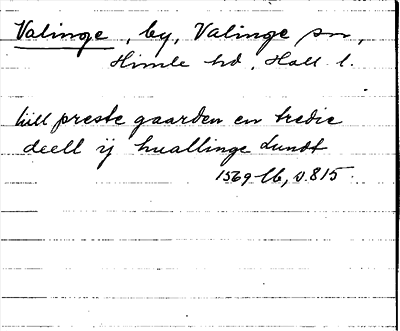 Valinge, by, Valinge sn,
Himle hd, Hall l.
till preste gaarden en tredie
deell ij huallinge Lundt
1569 lb, s. 815.